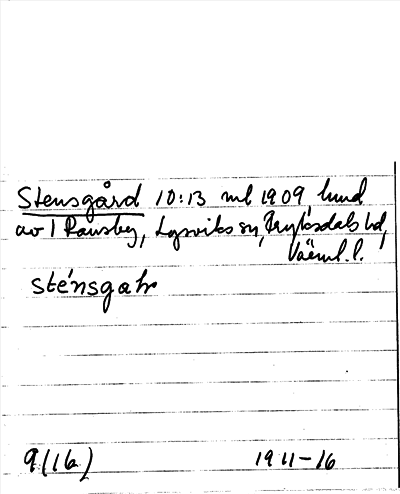 Stensgård 10:13 ml 1909, hmd
av 1 Ransby, Lysviks sn, Fryksdals hd,
Värml. l.
sténsgaṙ
9(16) 1911-16